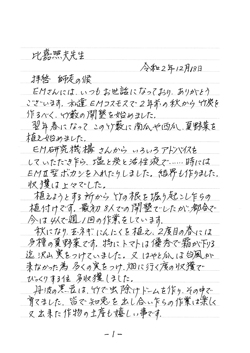 比嘉照夫先生
令和2年12月13日
拝啓 師走の候
EMさんには、いつもお世話になっており、ありがとう
ございます。私達EMコスモスで2年前の秋から竹炭を
作るべく、竹藪の開墾を始めました。
翌年春になって、この竹藪に南瓜や西瓜、夏野菜を
植え始めました。
EM研究機構さんからいろいろアドバイスを
していただきながら、塩と炭と活性液で……時には
EMⅡ型ボカシを入れたりしました。結果も作りました
収穫は上々でした。
植えようとする所から竹の根を掘り起こしながらの
植付けです。最初3人での開墾でしたが、
今は5人で週1回の作業をしています。
秋になり、玉ねぎ、にんにくを植え、2度目の春には
多種の夏野菜です。特にトマトは優秀で霜が下りる
迄沢山実をつけていました。又はやとうりは台風が
来なかった為多くの実をつけ、畑に行く度の収穫で
びっくりする位多収穫しました。
丹波の黒豆は、竹で虫除けドームを作り、その中で
育てました。皆で知恵を出し合いながらの作業は楽しく
又出来た作物の土産も嬉しい事です。
-1-